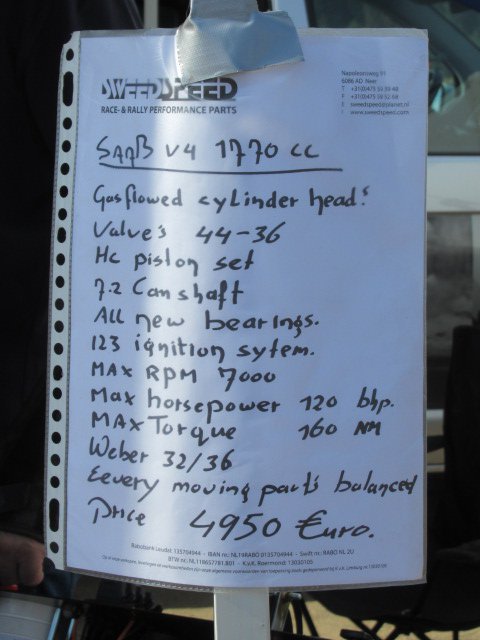 SWEEDSPEED
RACE- & RALLY PERFORMANCE PARTS
Napoleonsweg 91
6086 AD Neer
T +31(0)475 59 39 48
F +31(0)475 59 52 68
E sweedspeed@planet.nl
I www.sweedspeed.com
SAAB V4 1770 cc
Gasflowed cylinder head's
Valve's 44-36
Hc piston set
7.2 Camshaft
ALL new bearings.
123 ignition sytem.
MAX RPM 7000
Max horsepower 120 bhp.
MAX Torque 160 NM
Weber 32/36
Eevery moving part's balanced
Price 4950 €uro.
Rabobank Leudal 135704944 - IBAN nr: NL19RABO 0135704944 - Swift nr.: RABO NL 2U
BTW nr.: NL118657781.B01 - K.v.K. Roermond: 13030105